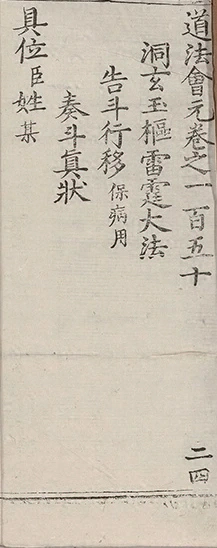 道法會元卷之一百五十
二四
洞玄玉樞雷霆大法
告斗行移保病用
奏斗眞狀
具位臣姓某